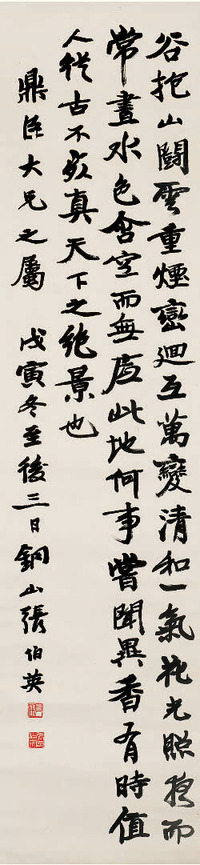 谷抱山闘雲重煙巒迴互萬變清和一氣花光照夜而
常晝水色含空而無底此地何事嘗聞異香有時值
人從古不寂真天下之絕景也
鼎臣大兄之屬 戊寅冬至後三日銅山張伯英